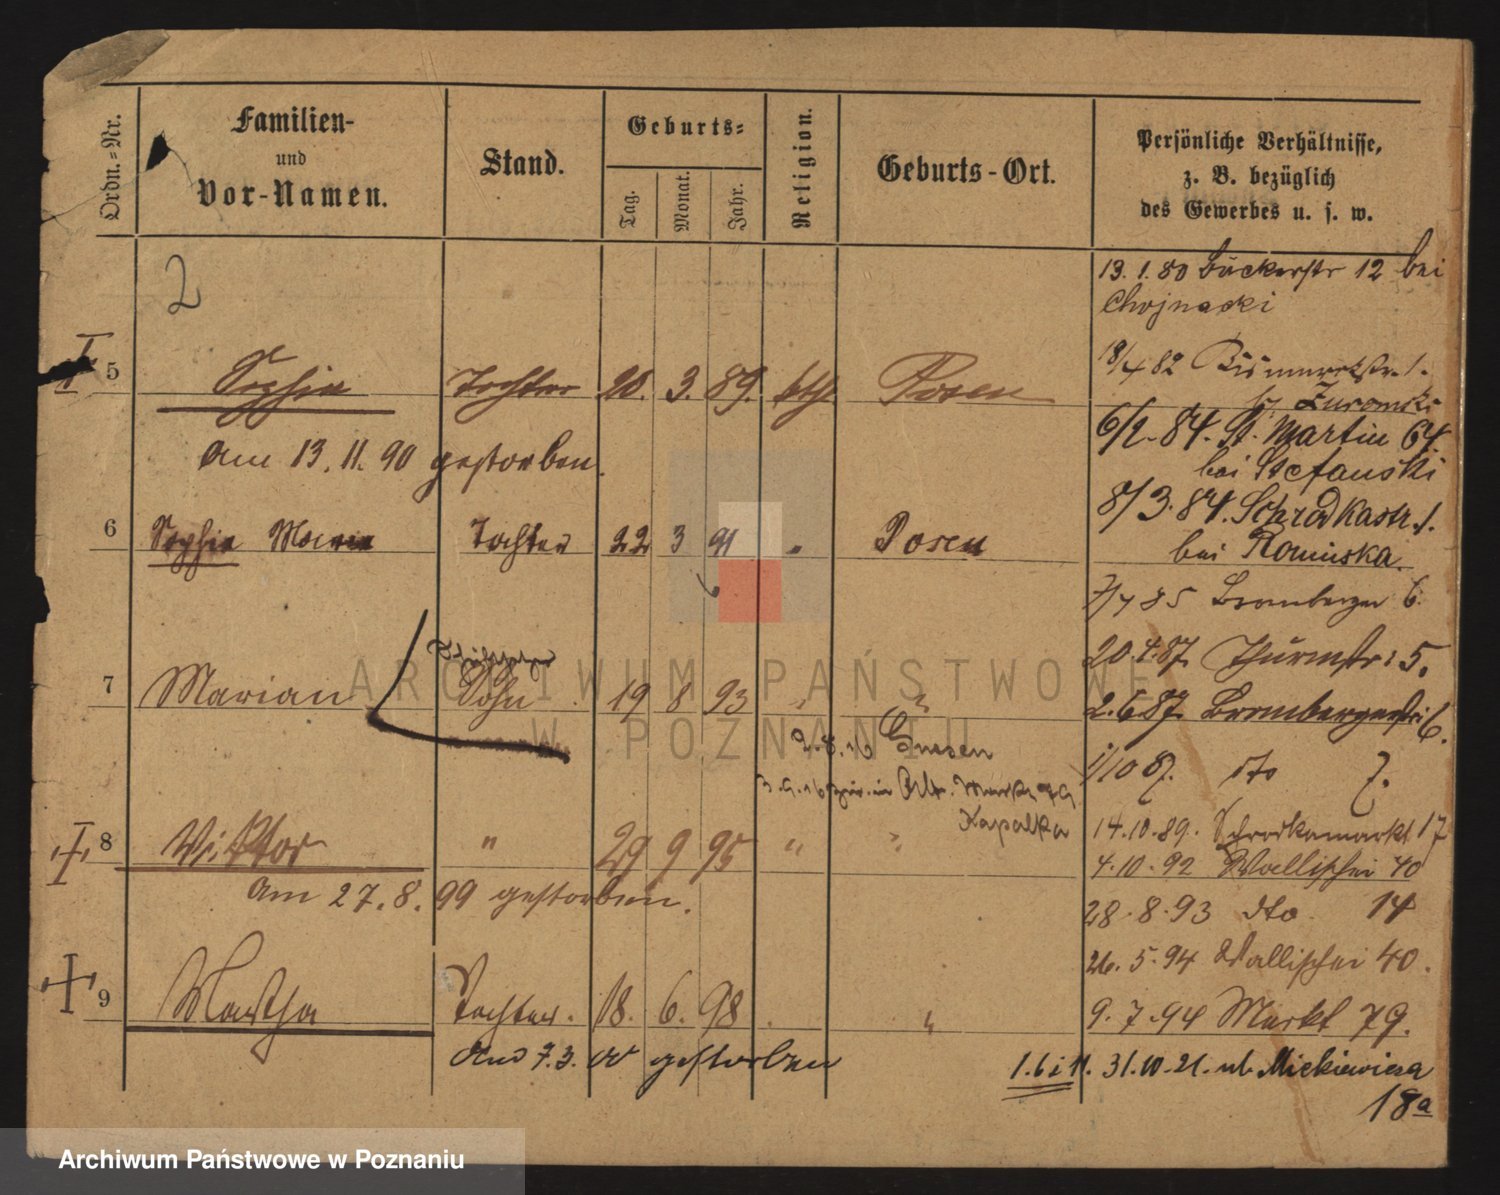 Ordn.-Nr.
Familien-
und
Vor-Namen.
Stand.
Geburts-
Tag.
Monat.
Jahr.
Religion.
Geburts-Ort.
Persönliche Verhältnisse,
z. B. bezüglich
des Gewerbes u. s. w.
2
13. 1. 80 Bäckerstr 12 bei
Chojnacki
18/4 82 Bismarckstr. 1.
b. Zuromski
5 Sophie Tochter 20. 3. 89. kth. Posen
6/2. 84. St. Martin 64
bei Stefanski
Am 13. 11. 90 gestorben.
8/3. 84. Schrodkastr. 1.
bei Rominska.
6 Sophie Maria Tochter 22 3 91 " Posen
7/7 85 Bromberger 6.
20.4.87. Thurmstr: 5.
7 Marian Sohn 19 8 93 " "
2.6.87. Brombergerstr: 6.
2.8.16 Gnesen
1/10 87. dto 7.
3.9.16 zur. in Alt. Markt 79
Kapalka
14.10.89. Schrodkamarkt 17
8 Viktor " 29 9 95 " "
4.10.92 Wallischei 40
Am 27. 8. 99 gestorben.
28.8.93 dto. 14
26.5.94 Wallischei 40.
9 Martha Tochter. 18. 6. 98 . "
9.7.94 Markt 79.
Am 7.3. 00 gestorben
1. 6 i 11. 31.10.21. ul. Mickiewicza
18a
ARCHIWUM PAŃSTWOWE
W POZNANIU
Archiwum Państwowe w Poznaniu